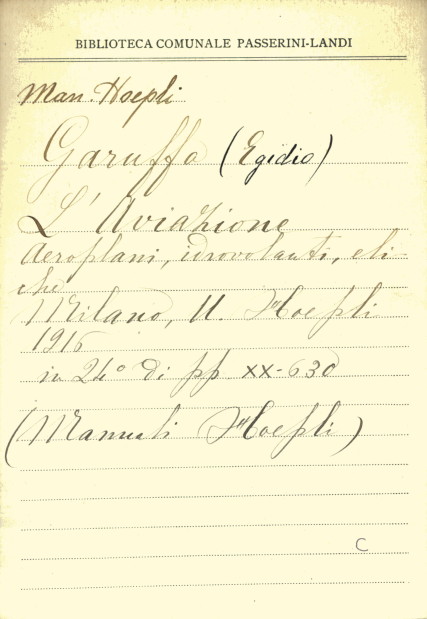 BIBLIOTECA COMUNALE PASSERINI-LANDI
Man. Hoepli
Garuffa (Egidio)
L'Aviazione
Aeroplani, idrovolanti, eli-
che
Milano, U. Hoepli
1916
in 24° di pp XX-630
(Manuali Hoepli)
C